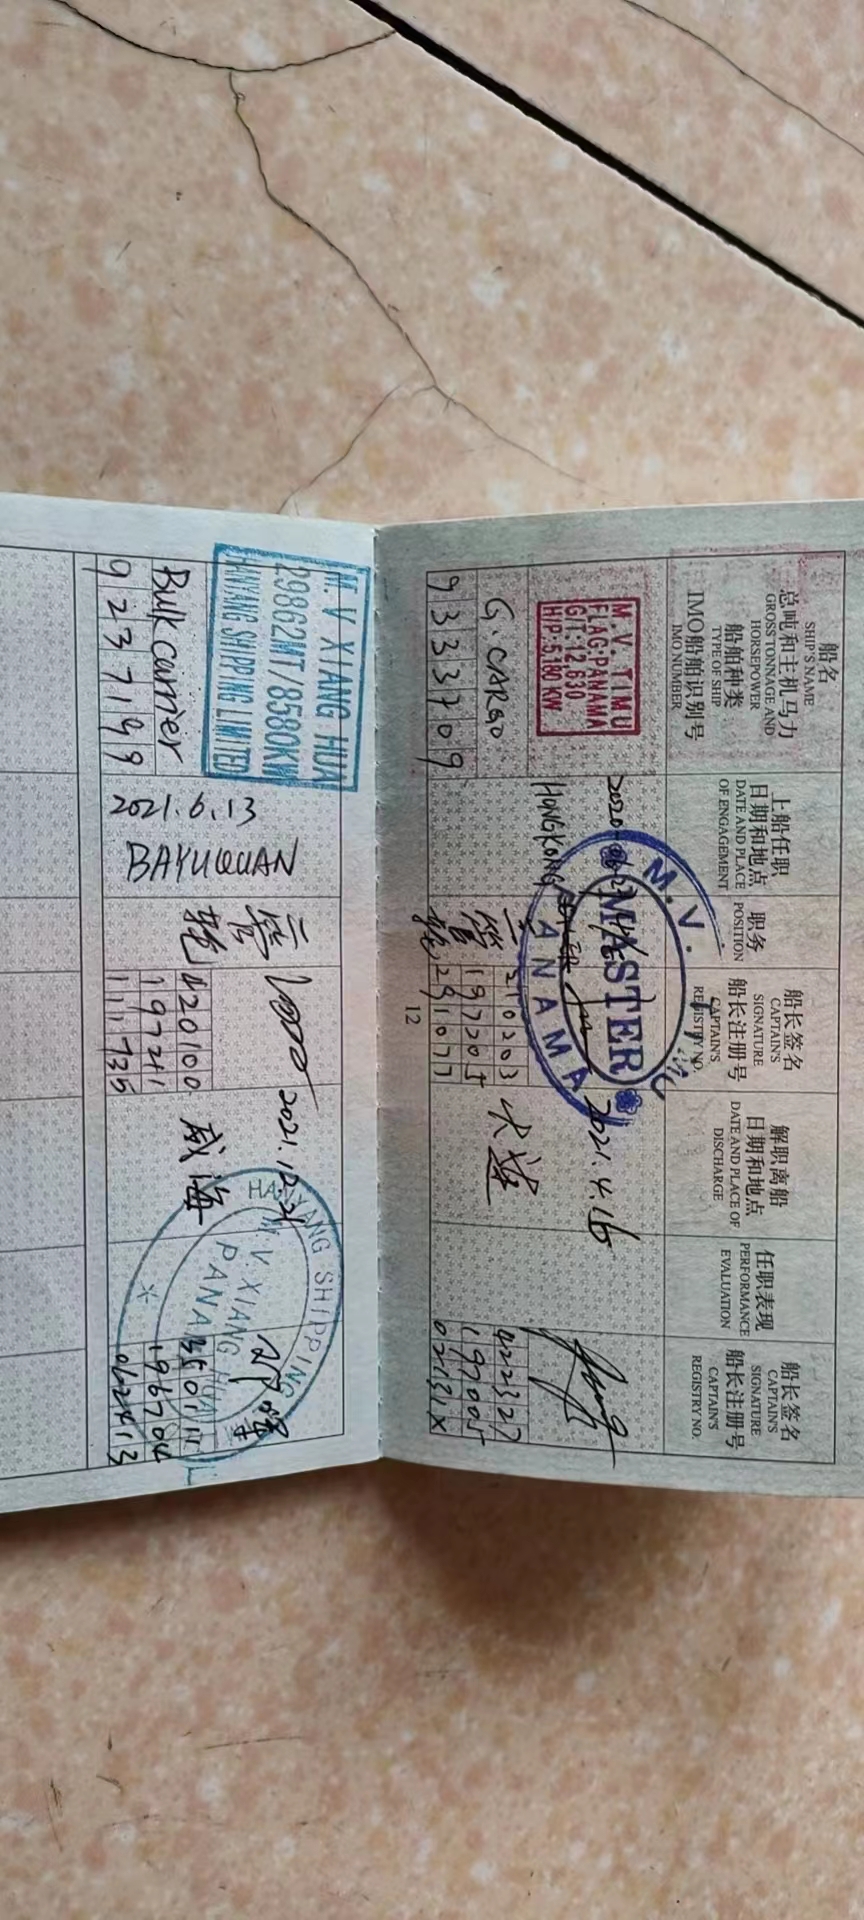 船名
SHIP'S NAME
总吨和主机马力
GROSS TONNAGE AND
HORSEPOWER
船舶种类
TYPE OF SHIP
IMO船舶识别号
IMO NUMBER
上船任职
日期和地点
DATE AND PLACE
OF ENGAGEMENT
职务
POSITION
船长签名
CAPTAIN'S
SIGNATURE
船长注册号
CAPTAIN'S
REGISTRY NO.
解职离船
日期和地点
DATE AND PLACE OF
DISCHARGE
任职表现
PERFORMANCE
EVALUATION
船长签名
CAPTAIN'S
SIGNATURE
船长注册号
CAPTAIN'S
REGISTRY NO.
M.V. TIMU
FLAG:PANAMA
G/T:12,630
H/P:5,180 KW
G. CARGO
9333709
HONGKONG
M.V.
MASTER
PANAMA
二管轮
210203
197205
291077
2021.4.16
大连
422327
197005
02131X
12
M.V XIANG HUA
29862MT/8580KW
HANYANG SHIPPING LIMITED
Bulk carrier
9237199
2021.6.13
BAYUQUAN
二管轮
420100
197211
111735
2021.12.21
威海
HANYANG SHIPPING
M.V.XIANG HUA
PANAMA
196704
062413